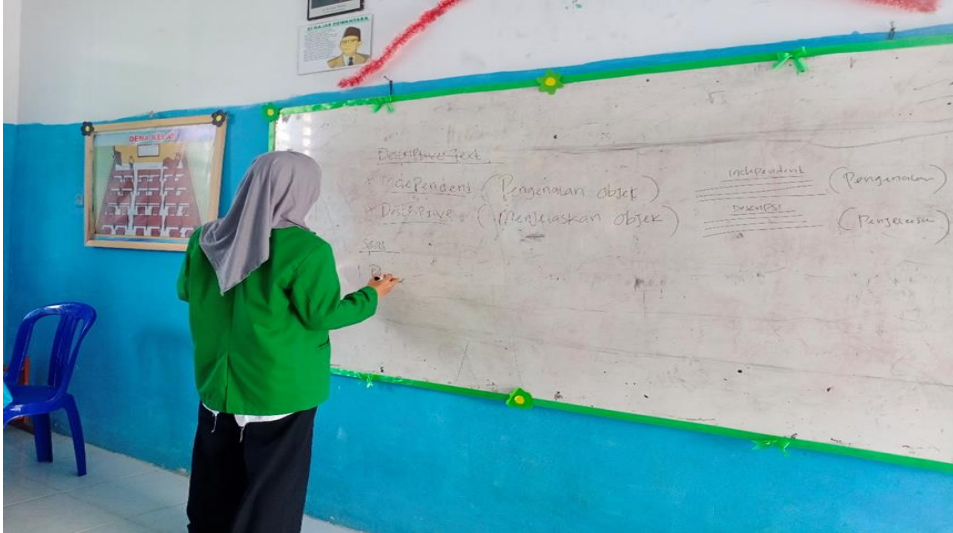 KI HAJAR DEWANTARA
DENA KELAS
Descriptive Text
Independent (Pengenalan objek)
Descriptive : (Menjelaskan objek)
Soal
independent (Pengenalan)
Deskripsi